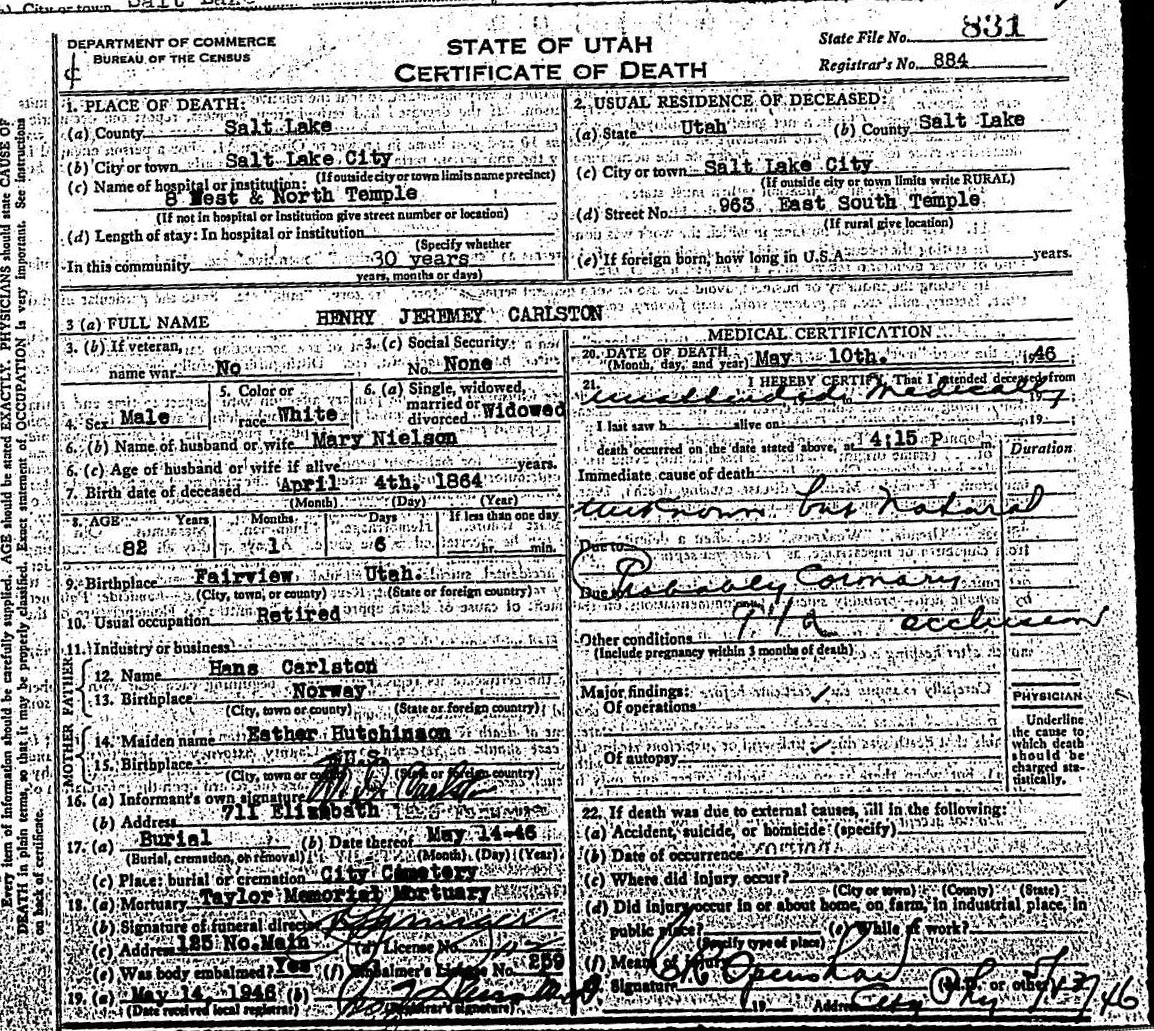 (a) City or town Salt Lake
DEPARTMENT OF COMMERCE
BUREAU OF THE CENSUS
STATE OF UTAH
CERTIFICATE OF DEATH
State File No. 831
Registrar's No. 884
1. PLACE OF DEATH:
(a) County Salt Lake
(b) City or town Salt Lake City
(If outside city or town limits name precinct)
(c) Name of hospital or institution:
8 West & North Temple
(If not in hospital or institution give street number or location)
(d) Length of stay: In hospital or institution
(Specify whether
In this community 30 years
years, months or days)
2. USUAL RESIDENCE OF DECEASED:
(a) State Utah (b) County Salt Lake
(c) City or town Salt Lake City
(If outside city or town limits write RURAL)
(d) Street No. 963 East South Temple
(If rural give location)
(e) If foreign born, how long in U.S.A. years.
3 (a) FULL NAME HENRY JEREMEY CARLSTON
3. (b) If veteran, name war No
3. (c) Social Security No. None
4. Sex Male
5. Color or race White
6. (a) Single, widowed, married or divorced Widowed
6. (b) Name of husband or wife Mary Nielson
6. (c) Age of husband or wife if alive years.
7. Birth date of deceased April 4th. 1864
(Month) (Day) (Year)
8. AGE Years Months Days If less than one day
82 1 6 hr. min.
9. Birthplace Fairview Utah.
(City, town, or county) (State or foreign country)
10. Usual occupation Retired
11. Industry or business
FATHER
12. Name Hans Carlston
13. Birthplace Norway
(City, town or county) (State or foreign country)
MOTHER
14. Maiden name Esther Hutchinson
15. Birthplace U.S.
(City, town or county) (State or foreign country)
16. (a) Informant's own signature
(b) Address 711 Elizabeth
17. (a) Burial (b) Date thereof May 14-46
(Burial, cremation, or removal) (Month) (Day) (Year)
(c) Place: burial or cremation City Cemetery
18. (a) Mortuary Taylor Memorial Mortuary
(b) Signature of funeral director
(c) Address 125 No. Main (d) License No.
(e) Was body embalmed? Yes (f) Embalmer's License No. 259
19. (a) May 14, 1946 (b)
(Date received local registrar) (Registrar's signature)
MEDICAL CERTIFICATION
20. DATE OF DEATH May 10th. 1946
(Month, day, and year)
21. I HEREBY CERTIFY, That I attended deceased from
unattended Medical 19
I last saw h alive on 19 ;
death occurred on the date stated above, at 4:15 P m.
Duration
Immediate cause of death
unknown but natural
Due to
Probably Coronary
Due to
94a occlusion
Other conditions
(Include pregnancy within 3 months of death)
Major findings:
Of operations ✓
Of autopsy ✓
PHYSICIAN
Underline
the cause to
which death
should be
charged sta-
tistically.
22. If death was due to external causes, fill in the following:
(a) Accident, suicide, or homicide (specify)
(b) Date of occurrence
(c) Where did injury occur?
(City or town) (County) (State)
(d) Did injury occur in or about home, on farm, in industrial place, in
public place? (e) While at work?
(Specify type of place)
(f) Means of injury
Signature Openshaw (M.D. or other)
19 Address City Phy
Every item of information should be carefully supplied. AGE should be stated EXACTLY. PHYSICIANS should state CAUSE OF
DEATH in plain terms, so that it may be properly classified. Exact statement of OCCUPATION is very important. See instructions
on back of certificate.